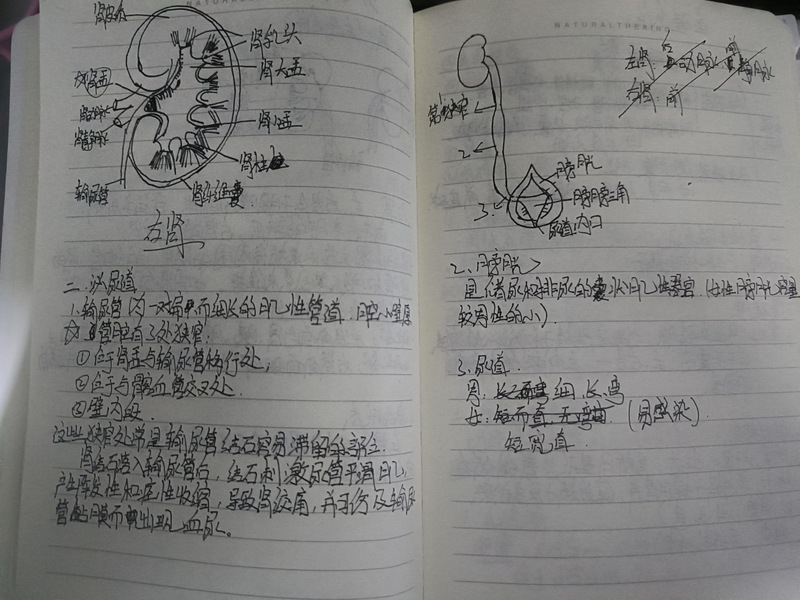 NATURALTHE
肾皮质
肾乳头
肾大盂
肾盂
肾小盂
肾动脉
肾静脉
肾柱
输尿管
肾纤维囊
右肾
二、泌尿道
1.输尿管为一对扁而细长的肌性管道.
管腔有3处狭窄:
①位于肾盂与输尿管移行处;
②位于与髂血管交叉处.
③壁内段.
这些狭窄处常是输尿管结石容易滞留的部位.
肾结石落入输尿管后,结石刺激尿管平滑肌,
产生阵发性和痉性收缩,导致肾绞痛,并可伤及输尿
管黏膜而出现血尿。
NATURALTHERINE
左肾:
右肾:前
2
3.
膀胱
膀胱三角
尿道内口
2、膀胱
是储尿和排尿的囊状肌性器官.(女性膀胱容量
较男性的小).
3.尿道.
男:长而弯 细、长、弯
女:短而直 无弯曲 (易感染).
短宽直.